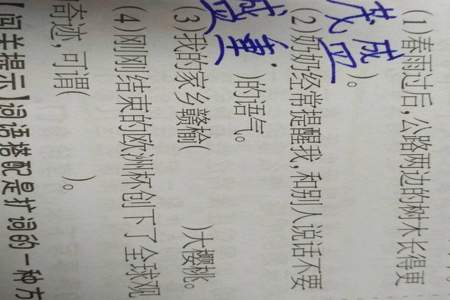 (1)春雨过后,公路两边的树木长得更
茂盛
)。
(2 奶奶经常提醒我,和别人说话不要
)的语气。
(3)我的家乡赣榆(        )大樱桃。
(4)刚刚结束的欧洲杯创下了全球观
奇迹,可谓(        )。
【回关提示】词语搭配是扩词的一种方